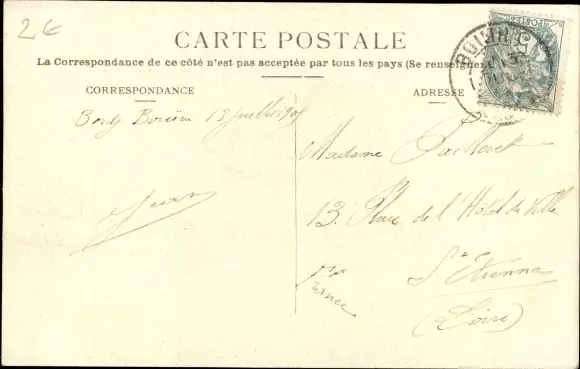 2€
CARTE POSTALE
La Correspondance de ce côté n'est pas acceptée par tous les pays (Se renseigne
CORRESPONDANCE
ADRESSE
13 Juillet 1905
Jean
Madame
13. Place de l'Hôtel de Ville
St Etienne
(Loire)
France